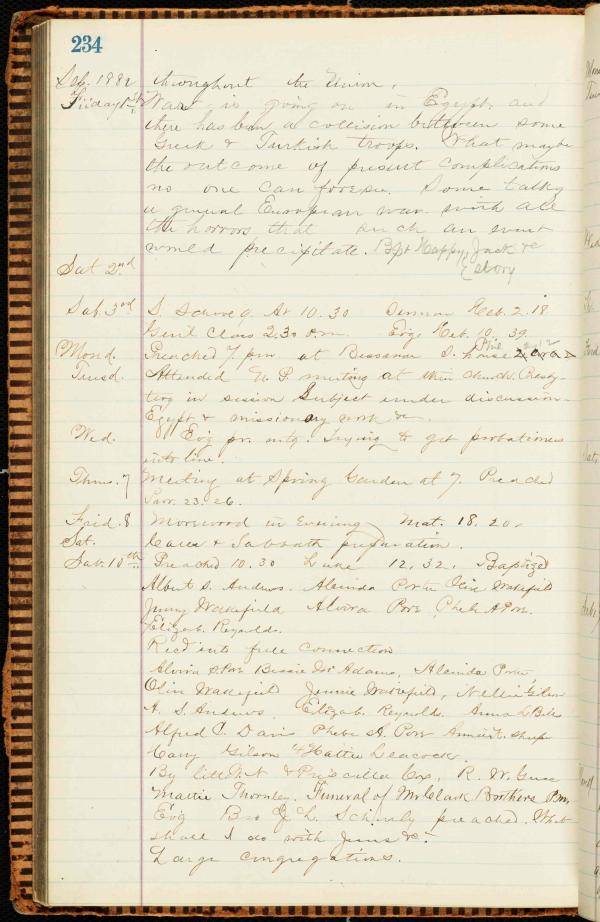 234
Sep. 1882 throughout the Union.
Friday 1st War is going on in Egypt and
there has ben a collision between some
Greek & Turkish troops. What maybe
the outcome of present complications
no one can foresee. Some talk of
a general European war with all
the horrors that such an event
would precipitate. Bapt Happy Jack &c
Story
Sat 2nd
Sab. 3rd S. School 9. At 10.30 Sermon Heb. 2.18
Gen'l Class 2.30 p.m. Evg. Heb. 10. 39.
Mond. Preached 7 pm at Bessamer S. house Phil 2.12
Tuesd. Attended U. P. meeting at their church. Presby-
tery in session Subject under discussion
Egypt & missionary work &c.
Wed. Evg pr. mtg. Trying to get probationers
into line.
Thurs. 7 Meeting at Spring Garden at 7. Preached
Prov. 23. 26.
Frid. 8 Norwood in Evening Mat. 18. 20.
Sat. Cares & Sabbath preparation.
Sab. 10th Preached 10.30 Luke 12. 32. Baptized
Albert S. Andrews. Alminda Porter Olin Wakefield
Jenny Wakefield Alvira Porr Phebe A Porr.
Elizab. Reynolds.
Recd into full connection
Alvira Porr Bessie McAdams, Alminda Porter
Olin Wakefield Jennie Wakefield, Nellie Gilson
A. S. Andrews. Elizab. Reynolds. Anna L Bills
Alfred C. Davis Phebe A. Porr
Harry Gilson & Hattie Leacock.
By & Priscilla Cox, R. W.
Mattie Thornley. Funeral of Mr Clark Borthers P.m.
Evg Bro J. L. preached. What
shall I do with Jesus &c.
Large congregations.